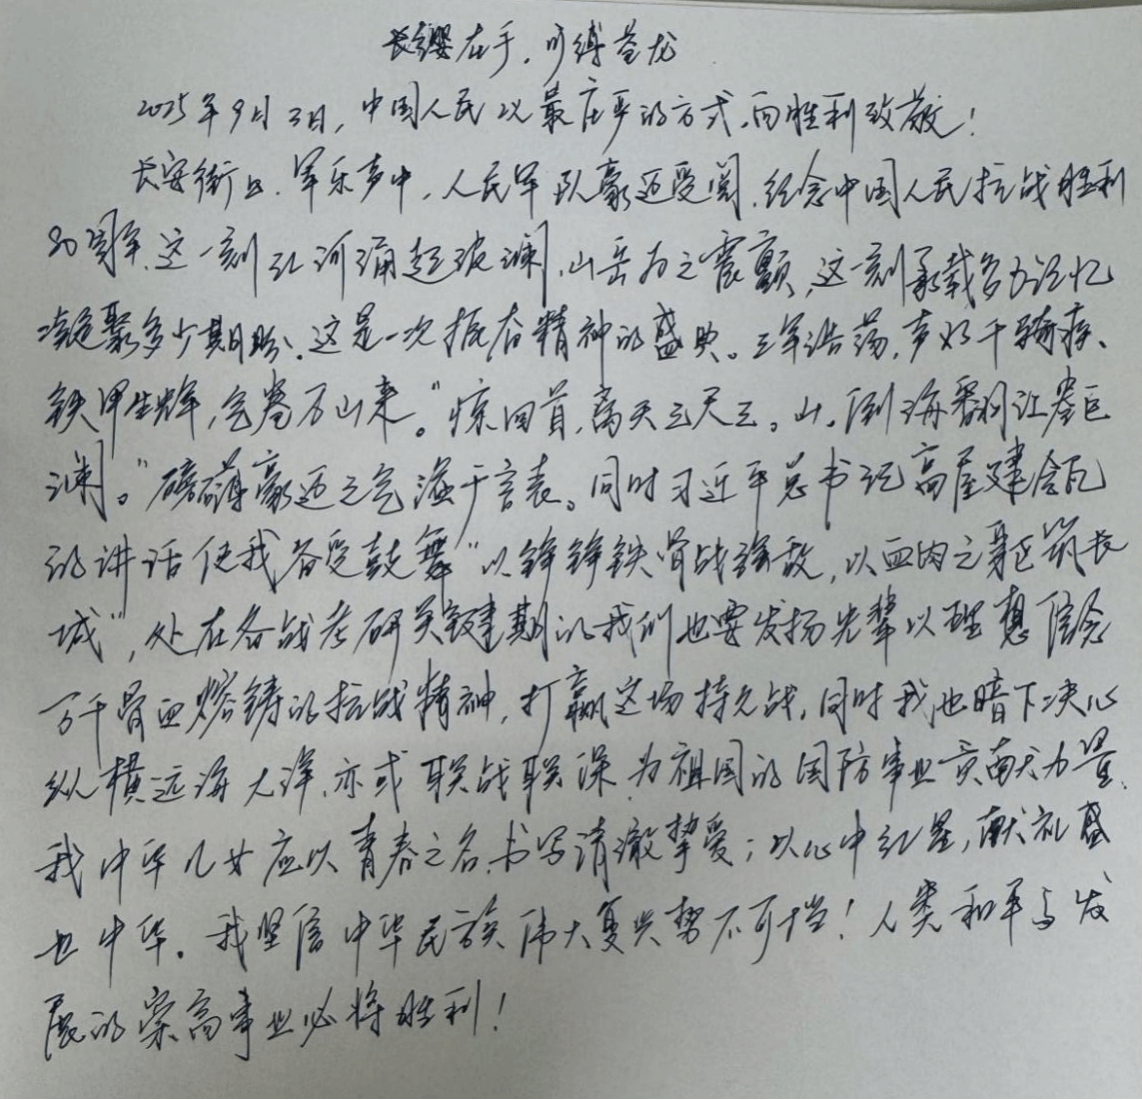 长缨在手，可缚苍龙
2025年9月3日，中国人民以最庄严的方式，向胜利致敬！
长安街上，军乐声中，人民军队豪迈受阅，纪念中国人民抗战胜利
80周年，这一刻江河涌起波澜，山岳为之震颤，这一刻承载多少记忆
凝聚多少期盼、这是一次振奋精神的盛典。三军浩荡，声如千骑疾、
铁甲生辉，气卷万山来。"惊回首，离天三尺三。山，倒海翻江卷巨
澜。"磅礴豪迈之气溢于言表。同时习近平总书记高屋建瓴
的讲话使我备受鼓舞"以铮铮铁骨战强敌，以血肉之躯筑长
城"，处在备战考研关键期的我们也要发扬先辈以理想信念
万千骨血熔铸的抗战精神，打赢这场持久战，同时我也暗下决心
纵横远海大洋，亦或联战联深，为祖国的国防事业贡献力量，
我中华儿女应以青春之名，书写清澈挚爱；以心中红星，献礼盛
世中华。我坚信中华民族伟大复兴势不可挡！人类和平与发
展的崇高事业必将胜利！